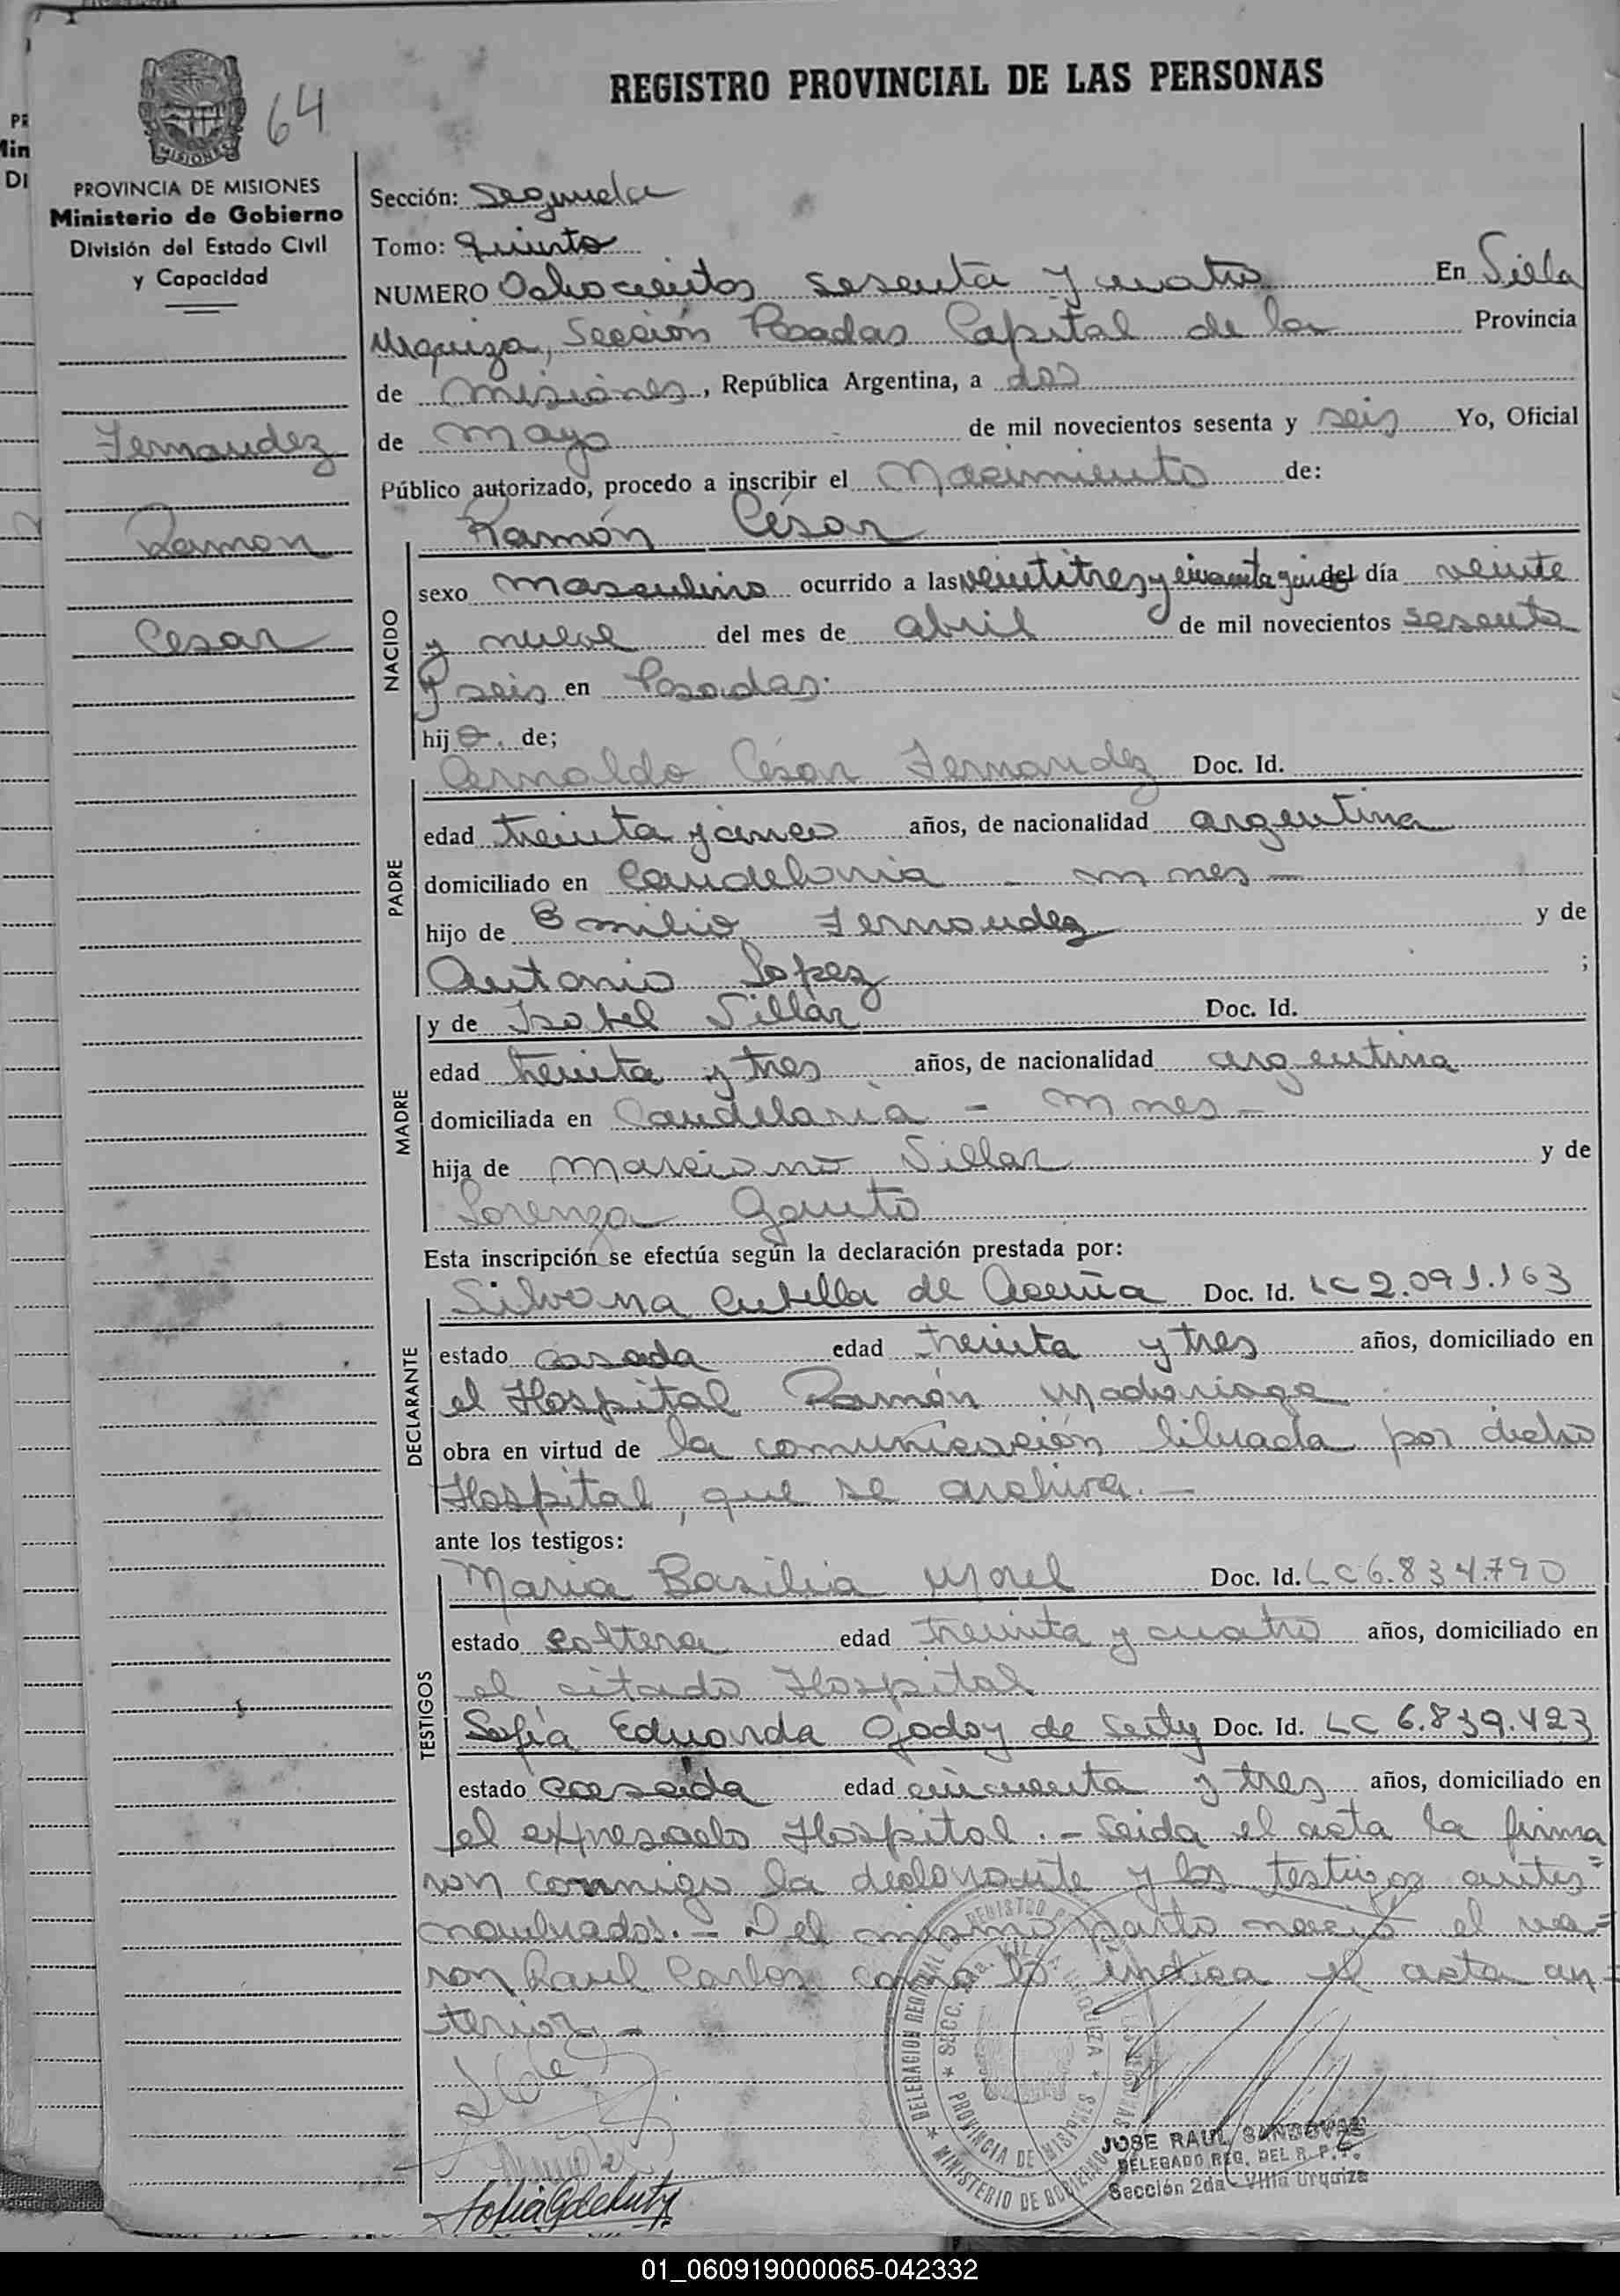 REGISTRO PROVINCIAL DE LAS PERSONAS
64
MISIONES
PROVINCIA DE MISIONES
Ministerio de Gobierno
División del Estado Civil
y Capacidad
Fernandez
Ramon
Cesar
Sección: Segunda
Tomo: Quinto
NUMERO Ochocientos sesenta y cuatro En Villa
Urquiza, Sección Posadas Capital de la Provincia
de Misiones, República Argentina, a dos
de Mayo de mil novecientos sesenta y seis Yo, Oficial
Público autorizado, procedo a inscribir el Nacimiento de:
Ramón César
NACIDO
sexo masculino ocurrido a las veintitres y cincuenta del día veinte
y nueve del mes de abril de mil novecientos sesenta
y seis en Posadas.
hijo. de;
PADRE
Arnaldo César Fernandez Doc. Id.
edad treinta y cinco años, de nacionalidad argentina
domiciliado en Candelaria - Mnes -
hijo de Emilio Fernandez y de
Antonia Lopez ;
MADRE
y de Isabel Villar Doc. Id.
edad treinta y tres años, de nacionalidad argentina
domiciliada en Candelaria - Mnes -
hija de Marciano Villar y de
Lorenza Gauto
Esta inscripción se efectúa según la declaración prestada por:
DECLARANTE
Silvana de Acuña Doc. Id. LC 2.091.163
estado casada edad treinta y tres años, domiciliado en
el Hospital Ramón Madariaga
obra en virtud de la comunicación librada por dicho
Hospital, que se archiva. -
ante los testigos:
TESTIGOS
Maria Basilia Morel Doc. Id. LC 6.834.790
estado soltera edad treinta y cuatro años, domiciliado en
el citado Hospital
Sofía Eduarda Godoy de Doc. Id. LC 6.839.423
estado casada edad cincuenta y tres años, domiciliado en
el expresado Hospital. - Leida el acta la firma
ron conmigo la declarante y los testigos antes
nombrados. - Del mismo parto nació el va=
ron Raul Carlos como lo indica el acta an=
terior. -
DELEGACION REGIONAL
SECC. 2da. VILLA URQUIZA
PROVINCIA DE MISIONES
MINISTERIO DE GOBIERNO
JOSE RAUL SANDOVAL
DELEGADO REG. DEL R. P. P.
Sección 2da Villa Urquiza
01_060919000065-042332